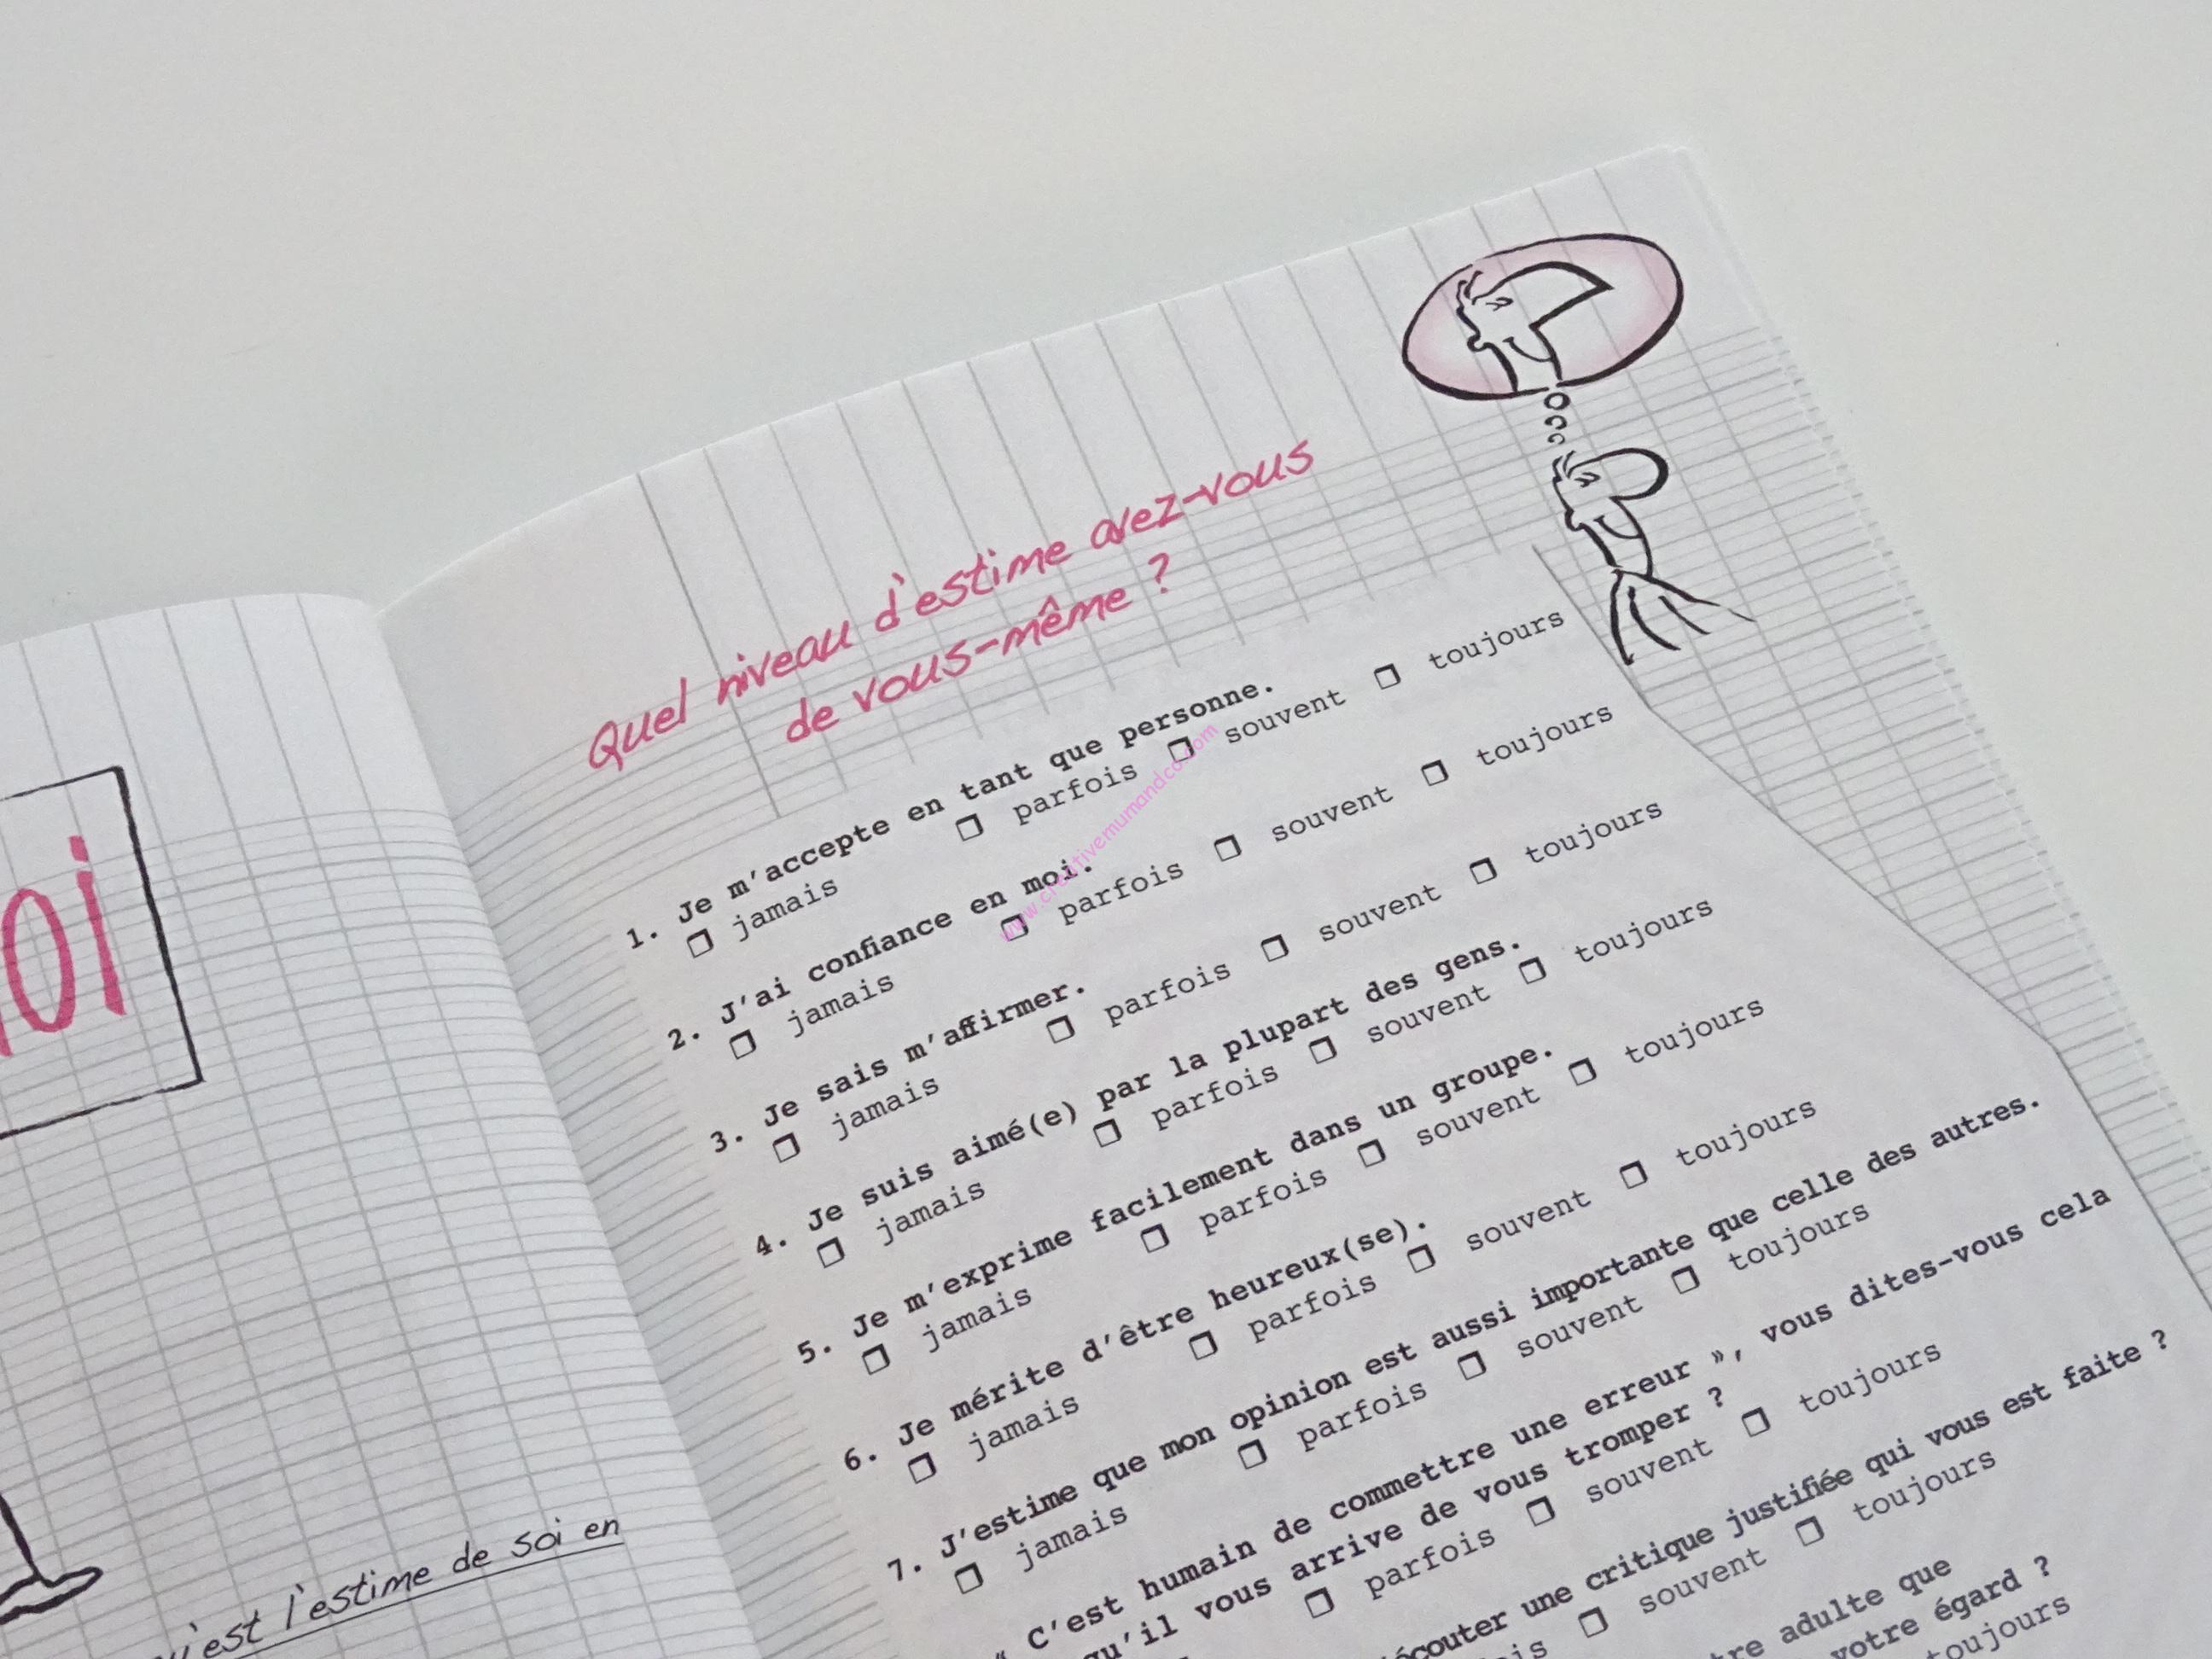 Quel niveau d'estime avez-vous
de vous-même ?
1. Je m'accepte en tant que personne.
❒ jamais ❒ parfois ❒ souvent ❒ toujours
2. J'ai confiance en moi.
❒ jamais ❒ parfois ❒ souvent ❒ toujours
3. Je sais m'affirmer.
❒ jamais ❒ parfois ❒ souvent ❒ toujours
4. Je suis aimé(e) par la plupart des gens.
❒ jamais ❒ parfois ❒ souvent ❒ toujours
5. Je m'exprime facilement dans un groupe.
❒ jamais ❒ parfois ❒ souvent ❒ toujours
6. Je mérite d'être heureux(se).
❒ jamais ❒ parfois ❒ souvent ❒ toujours
7. J'estime que mon opinion est aussi importante que celle des autres.
❒ jamais ❒ parfois ❒ souvent ❒ toujours
« C'est humain de commettre une erreur », vous dites-vous cela
qu'il vous arrive de vous tromper ?
❒ parfois ❒ souvent ❒ toujours
écouter une critique justifiée qui vous est faite ?
❒ souvent ❒ toujours
adulte que
votre égard ?
toujours
oi
est l'estime de soi en
www.creativemumandco.com